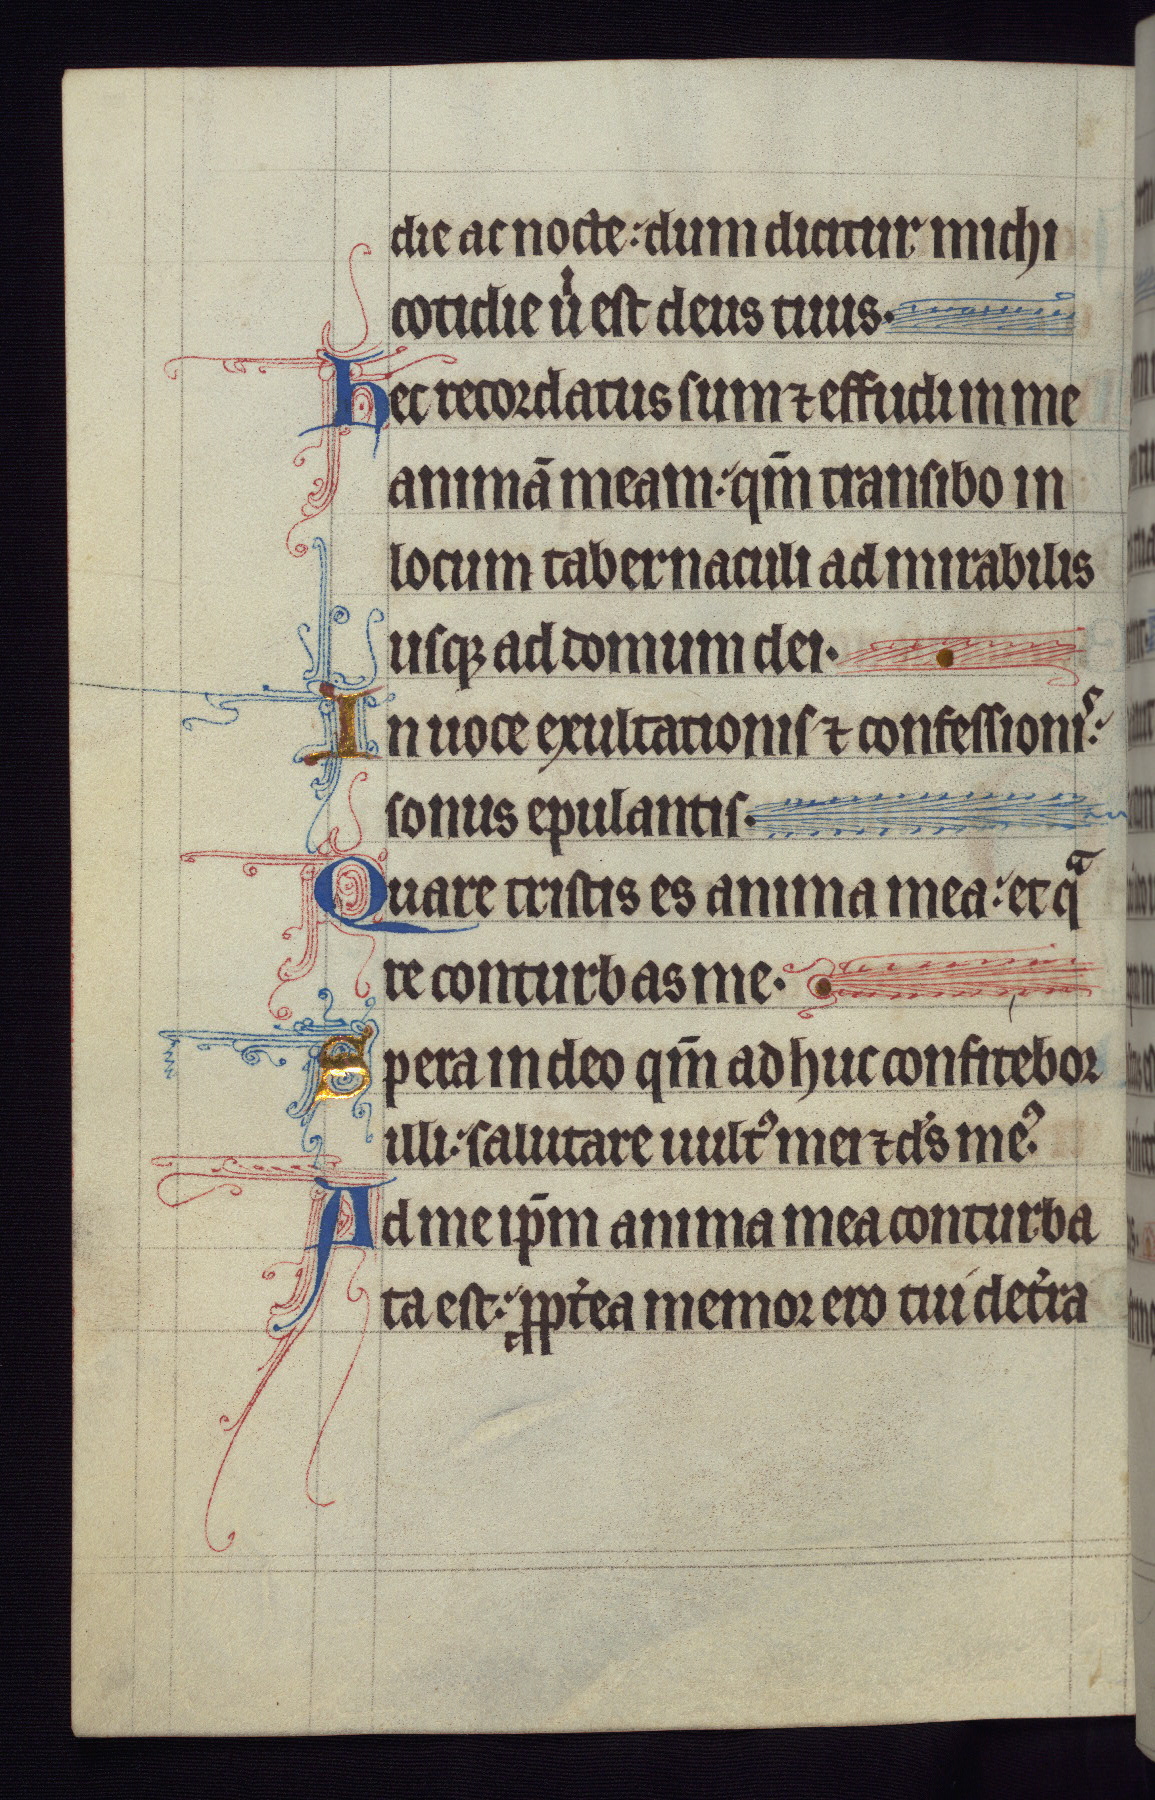 die ac nocte: dum dicitur michi
cotidie uͥ est deus tuus.
Hec recordatus sum ⁊ effudi in me
animā meam: qm̄ transibo in
locum tabernaculi admirabilis
usqꝫ ad domum dei.
In uoce exultationis ⁊ confessionis:
sonus epulantis.
Quare tristis es anima mea: et qͣ
re conturbas me.
Spera in deo qm̄ adhuc confitebor
illi: salutare uultꝰ mei ⁊ d̓s meꝰ.
Ad me ip̄m anima mea conturba
ta est: ꝓpt̓ea memor ero tui de t̓ra